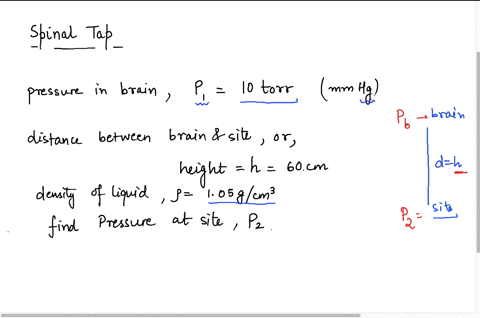 Spinal Tap
pressure in brain, P₁ = 10 torr (mm Hg)
P_b → brain
distance between brain & site, or,
d=h
height = h = 60.cm
density of liquid, ρ = 1.05 g/cm³
find Pressure at site, P₂.
P₂ = site